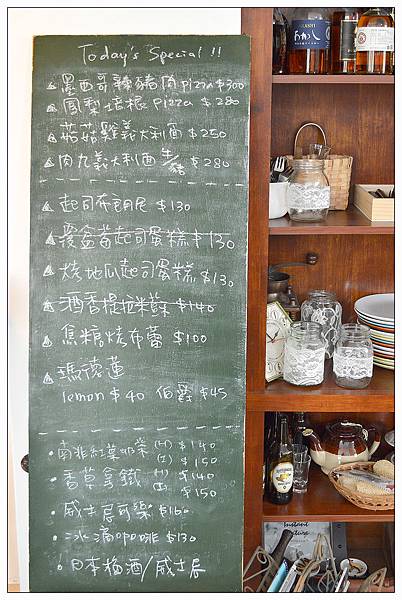 Today's Special !!
墨西哥辣豬肉 pizza $300
鳳梨培根 Pizza $280
菇菇雞義大利面 $250
肉丸義大利面 牛/豬 $280
起司布朗尼 $130
覆盆莓起司蛋糕 $130
烤地瓜起司蛋糕 $130
酒香提拉米蘇 $140
焦糖烤布蕾 $100
瑪德蓮
lemon $40 伯爵 $45
南非紅葉奶茶 (H) $140
(I) $150
香草拿鐵 (H) $140
(I) $150
威士忌可樂 $160
冰滴咖啡 $130
日本梅酒/威士忌
あかし
Instant